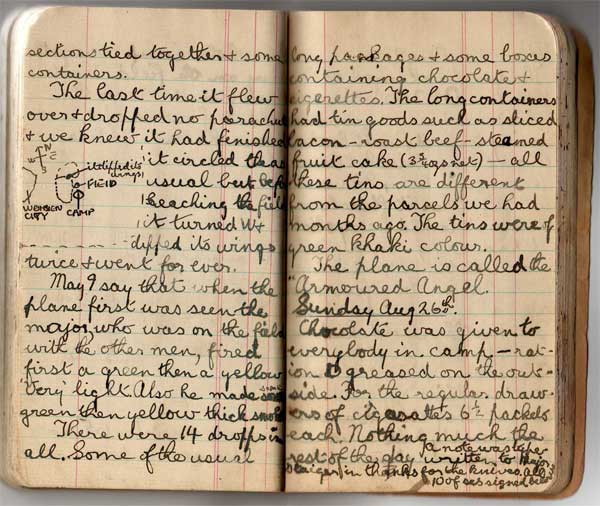 sections tied together & some
containers.
The last time it flew
over & dropped no parachu
& we knew it had finished
it circled the as
usual but befo
reaching the field
it turned W &
dipped its wings
twice & went for ever.
N
W
E
S
it dipped its
wings
FIELD
CAMP
CITY
May I say that when the
plane first was seen the
major, who was on the field
with the other men, fired
first a green then a yellow
'very' light. Also he made
green then yellow thick smoke
There were 14 dropps in
all. Some of the usual
long packages & some boxes
containing chocolate &
cigerettes. The long containers
had tin goods such as sliced
bacon - roast beef - steamed
fruit cake - all
these tins are different
from the parcels we had
months ago. The tins were of
green khaki colour.
The plane is called the
"Armoured Angel.
Sunday Aug 26th.
Chocolate was given to
everybody in camp - rat-
ion D greased on the out-
side. For the regular draw-
ers of cigs 6½ packets
each. Nothing much the
rest of the day
a note was
written to Major
Staiger in thanks for the knives. All
10 of us signed